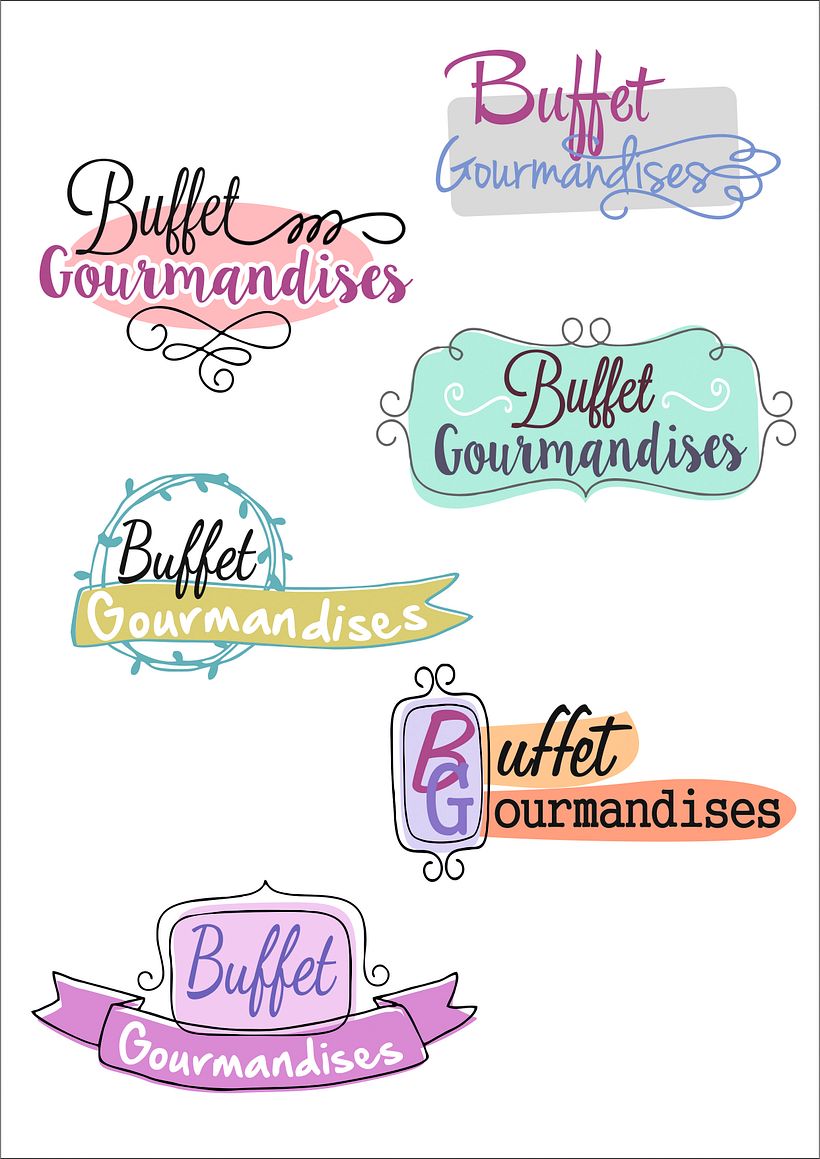 Buffet
Gourmandises
Buffet
Gourmandises
Buffet
Gourmandises
Buffet
Gourmandises
Buffet
Gourmandises
Buffet
Gourmandises